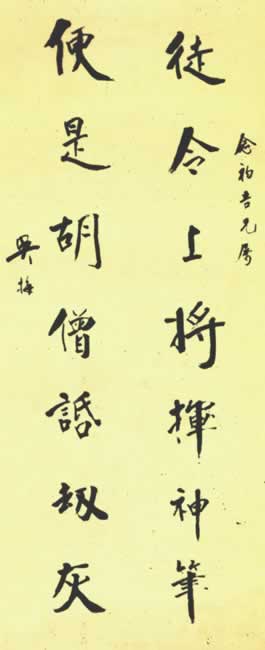 吾兄屬
徒令上將揮神筆
便是胡僧話劫灰
吳梅